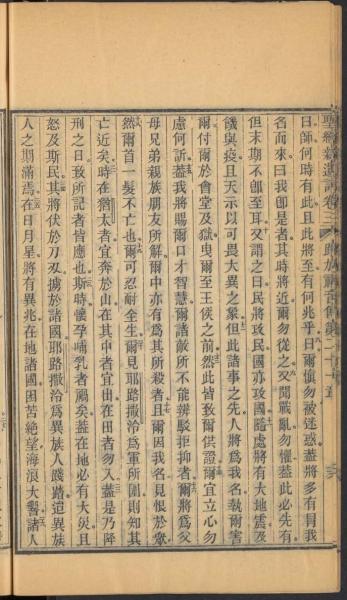 聖經新遺詔卷三
路加傳福音書第二十一章
曰師何時有此且此將至有何兆乎曰爾愼勿被迷惑蓋將多有冒我
名而來曰我卽是者其時將近爾勿從之又聞戰亂勿懼蓋此必先有
但末期不卽至耳又謂之曰民將攻民國亦攻國隨處將有大地震及
饑與疫且天示以可畏大異之象但此諸事之先人將爲我名執爾害
爾付爾於會堂及獄曳爾至王侯之前然此皆致爾供證爾宜立心勿
慮何訴蓋我將賜爾口才智慧爾諸敵所不能辨駁拒抑者爾將爲父
母兄弟親族朋友所解爾中亦有爲其所殺者且爾因我名見恨於衆
然爾首一髮不亡也爾可忍耐全生爾見耶路撒冷爲軍所圍則知其
亡近矣時在猶太者宜奔於山在其中者宜出在田者勿入蓋是乃降
刑之日致所記者皆應也斯時懷孕哺乳者禍矣蓋在地必有大災且
怒及斯民其將伏於刀刃擄於諸國耶路撒冷爲異族人踐踏迨異族
人之期滿焉在日月星將有異兆在地諸國困苦絶望海浪大響諸人